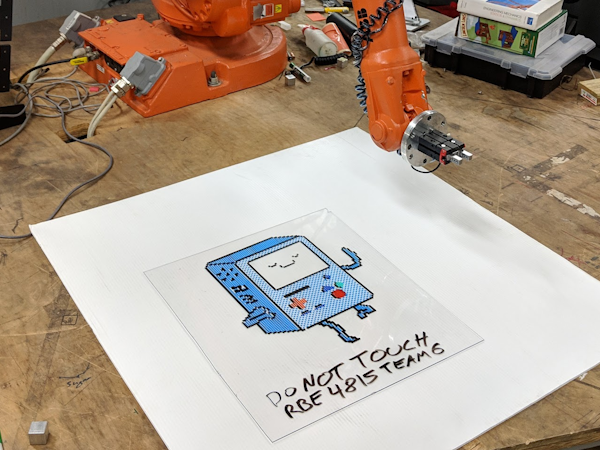 DO NOT TOUCH
RBE 4815 TEAM 6